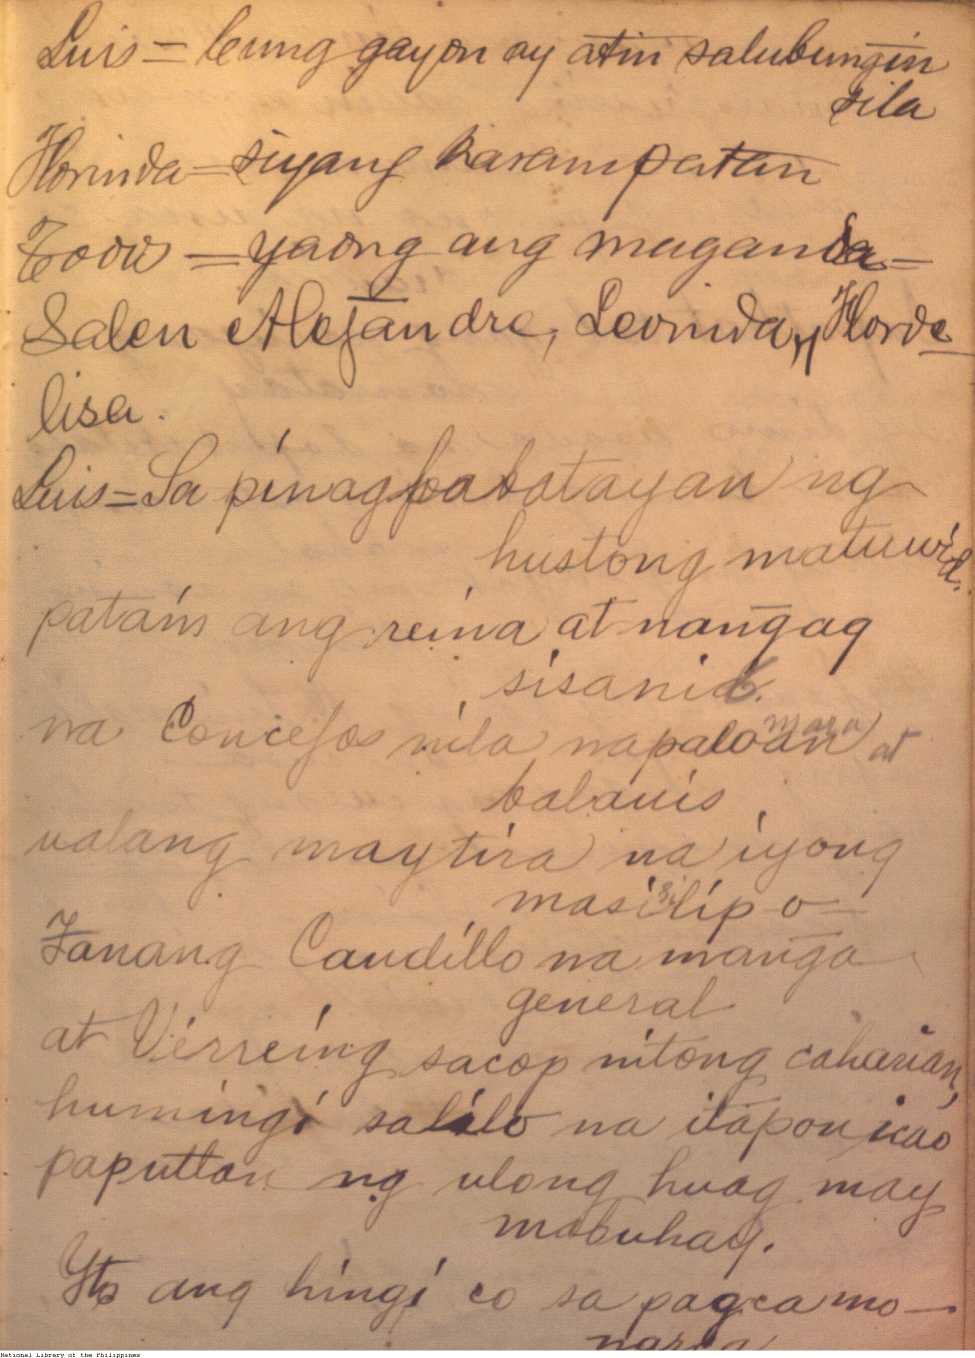 Luis = Cung gayon ay atin salubungin
sila
Florinda = siyang karampatan
Toov = yaong ang maganda –
Salen Alejandre, Leorinda, y Florde
lisa.
Luis = Sa pinagbabatayan ng
hustong matuuid.
patáis ang reina at nangag
sisanib.
na Concejos nila napaloan maga at
balauis
ualang maytira na iyong
masisilip o –
Tanang Caudillo na manga
general
at Virreing sacop nitong caharian,
humingi saliló na itapon icao
paputtan ng ulong huag may
mabuhay.
Yto ang hingi co sa pagca mo –
narca
National Library of the Philippines